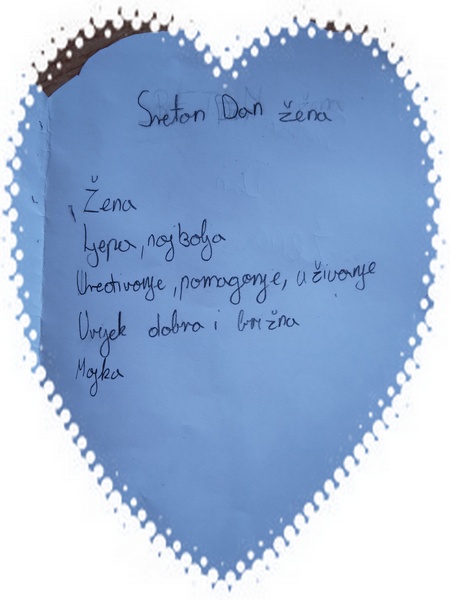 Sretan Dan žena
Žena
Ljepa, najbolja
Uređivanje, pomaganje, uživanje
Uvijek dobra i brižna
Majka